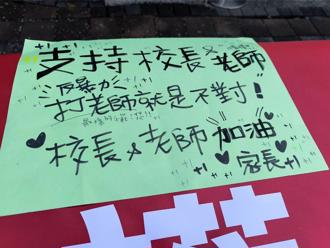 支持校長&老師
反暴力
打老師就是不對!
校長&老師加油
家長